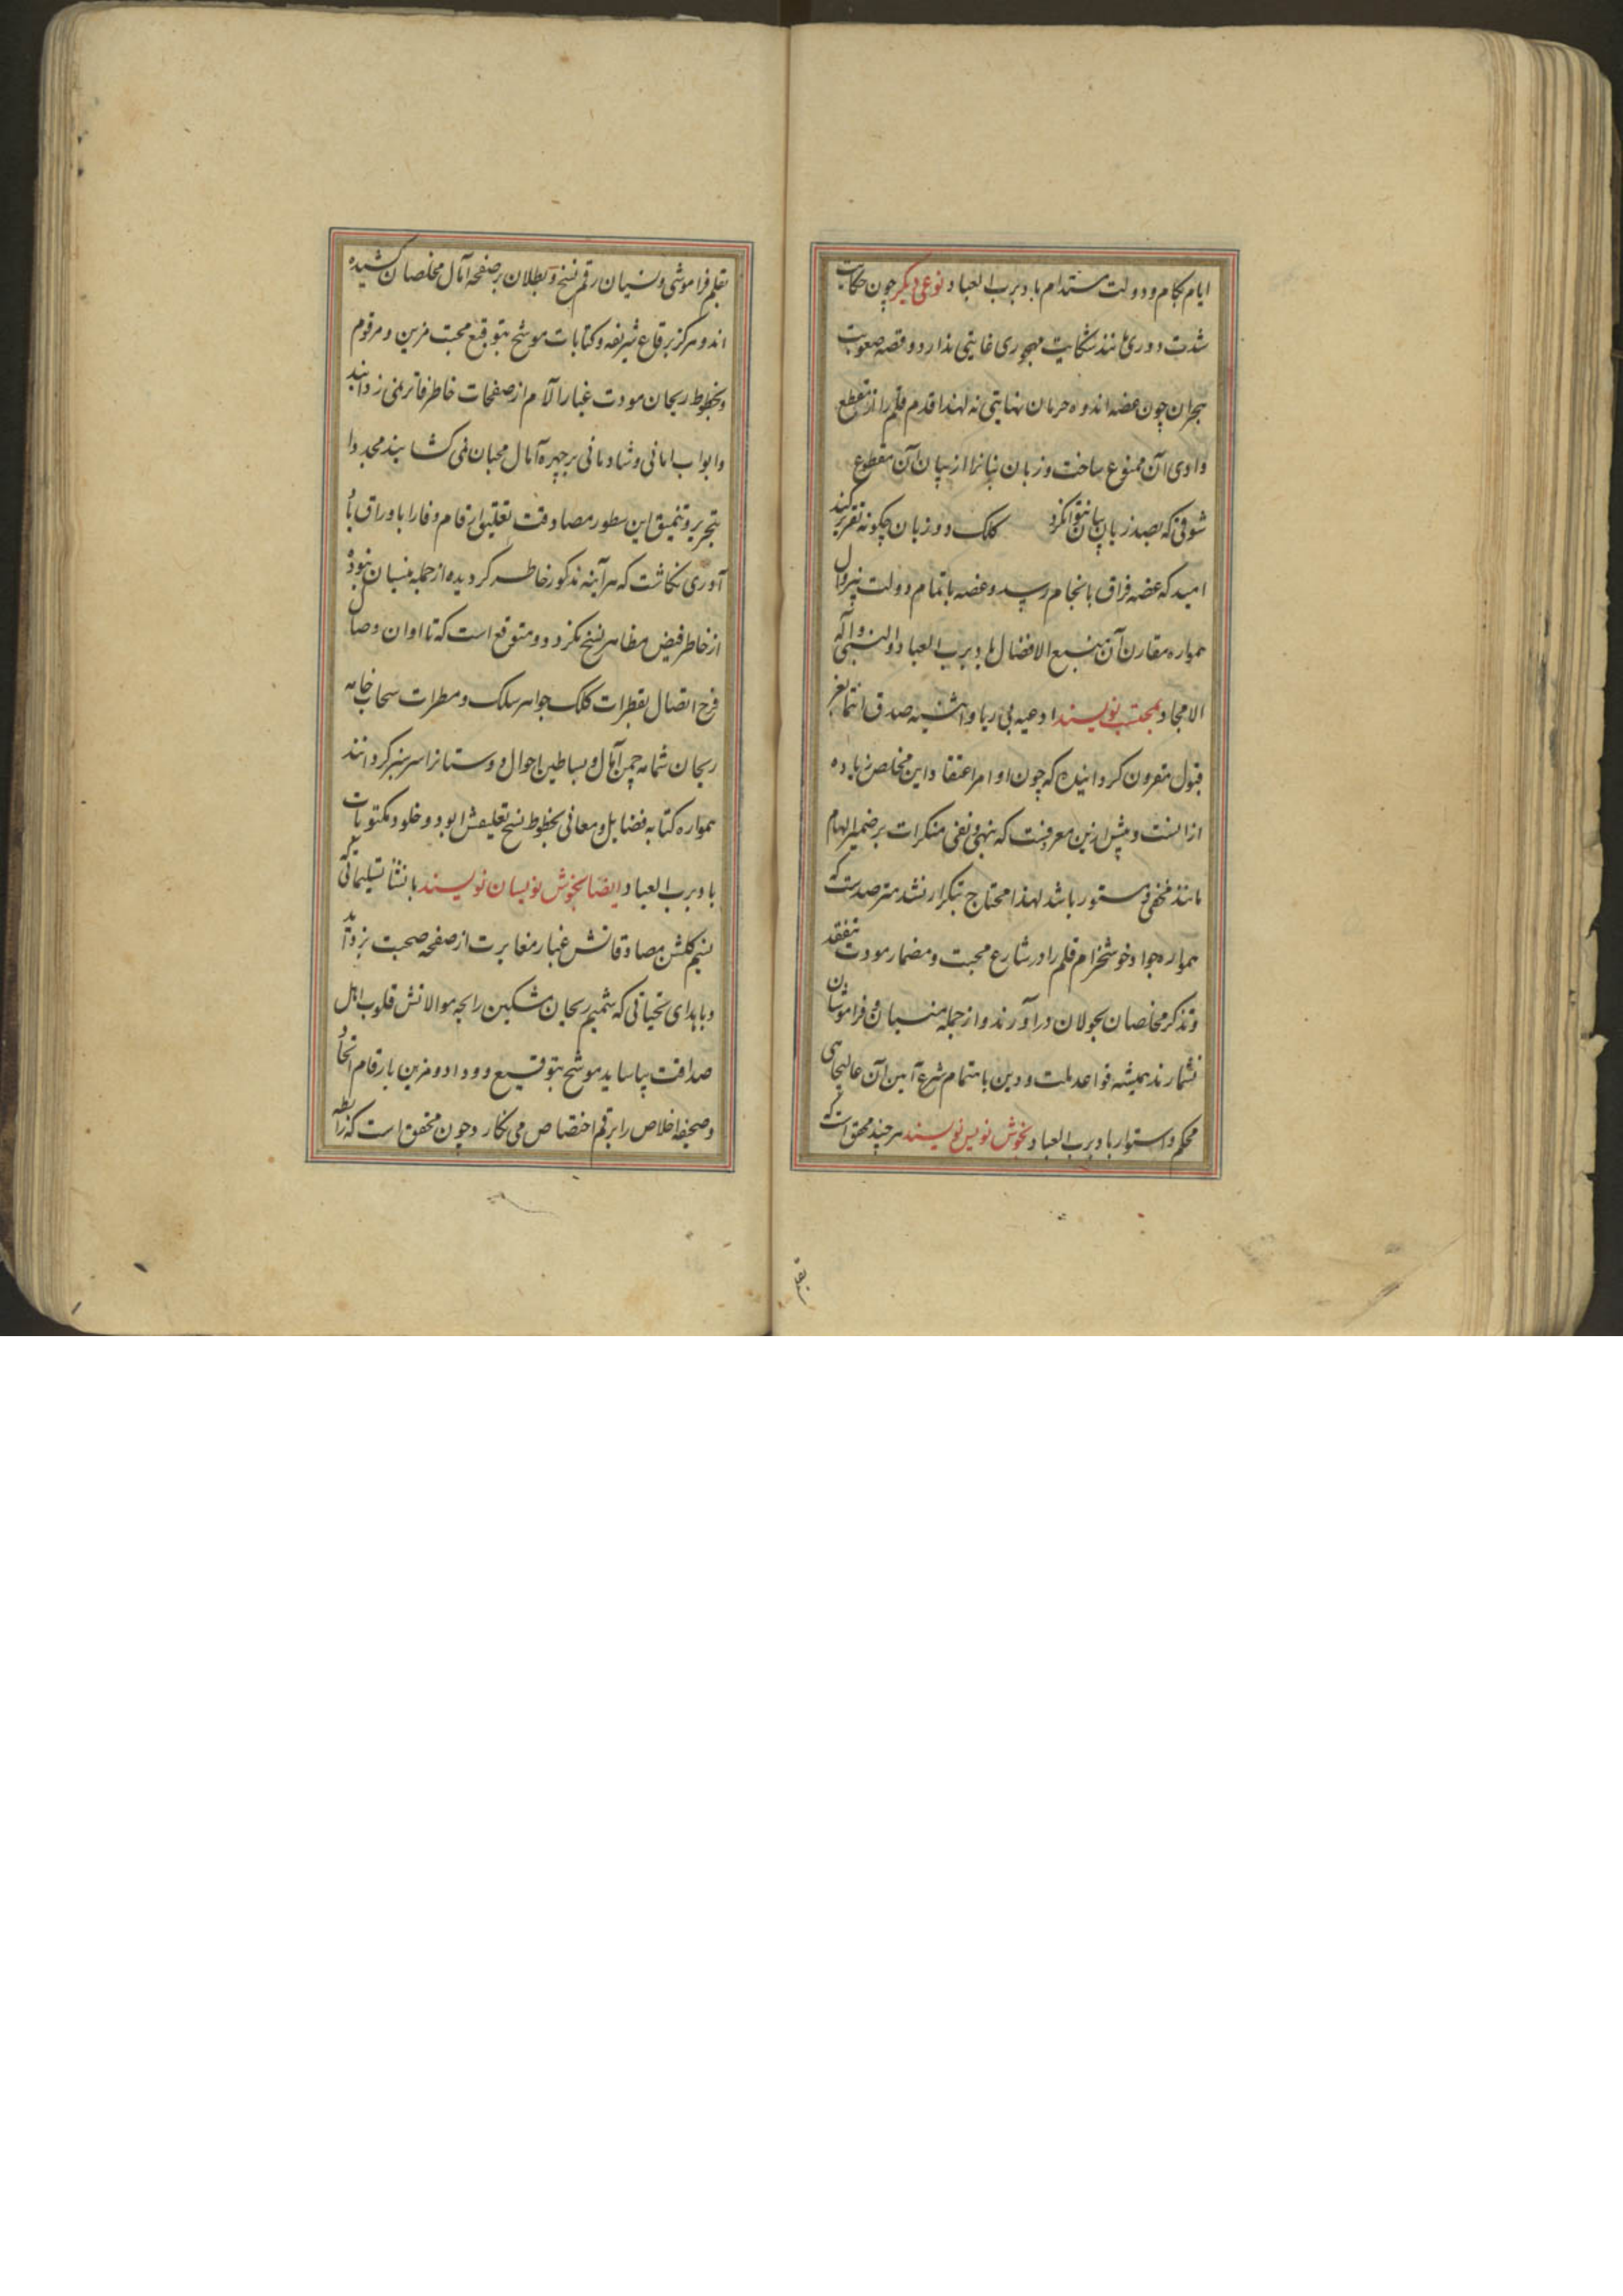 ایام بکام و دولت مستدام باد برب العباد نوعی دیگر چون حکایت
شدت دوری مانند شکایت مهجوری غایتی ندارد و قصه صعوبت
هجران چون غصه اندوه حرمان نهایتی نه لهذا قدم قلم را از قطع
وادی آن ممنوع ساخت و زبان بیانرا از بیان آن مقطوع
شوقی که بصد زبان بیان نتوانکرد کلک دو زبان چگونه تقریر کند
امید که غصه فراق بانجام رسد و غصه باتمام دولت بیزوال
همواره مقارن آن منبع الافضال باد برب العباد والنبی و آله
الامجاد بمحتسب نویسند ادعیه بی ریا و اثنیه صدق انتما بعز
قبول مقرون گردانیده که چون اوامر اعتقاد این مخلص زیاده
از آنست و پیش ازین معرفت که بنهی و نفی منکرات بر ضمیر الهام
مانند مخفی و مستور باشد لهذا محتاج بتکرار نشد مترصد است که
همواره جواد خوشخرام قلم را در شارع محبت و مضمار مودت بتفقد
و تذکر مخلصان بجولان درآورند و از جمله منسیان و فراموشان
نشمارند همیشه قواعد ملت و دین باهتمام شرع آیین آن عالیجاهی
محکم و استوار باد برب العباد بخوش نویس نویسند هر چند محقق است که
بقلم
بقلم فراموشی و نسیان رقم نسخ و بطلان بر صفحه آمال مخلصان کشیده
اند و هرگز برقاع شریفه و کتابات موشح بتوقیع محبت مزین و مرقوم
و بخطوط ریحان مودت غبار آلام از صفحات خاطر فاتر نمی زدایند
و ابواب امانی و شادمانی بر چهره آمال محبان نمی گشایند مجددا
بتحریر و تنمیق این سطور مصادقت تعلیق ارقام وفا را باوراق یاد
آوری نگاشت که هر آینه مذکور خاطر گردیده از جمله منسیان نبوده
از خاطر فیض مظاهر نسخ نگردد و متوقع است که تا اوان وصال
فرح اتصال بقطرات کلک جواهر سلک و مطرات سحاب خامه
ریحان شمامه چمن آمال و بساطین احوال دوستانرا سرسبز گردانند
همواره کتابه فضایل و معانی بخطوط نسخ تعلیقش ابود و خلود مکتوبات
باد برب العباد ایضا بخوش نویسان نویسند بانشاء تسلیماتی که
نسیم گلشن مصادقاتش غبار مغایرت از صفحه صحبت بزداید
و باهدای تحیاتی که شمیم ریحان مشکین رایحه موالاتش قلوب اهل
صداقت بیاساید موشح بتوقیع و وداد و مزین بارقام اتحاد
و صحیفه اخلاص را برقم اختصاص می نگارد و چون محقق است که رابطه